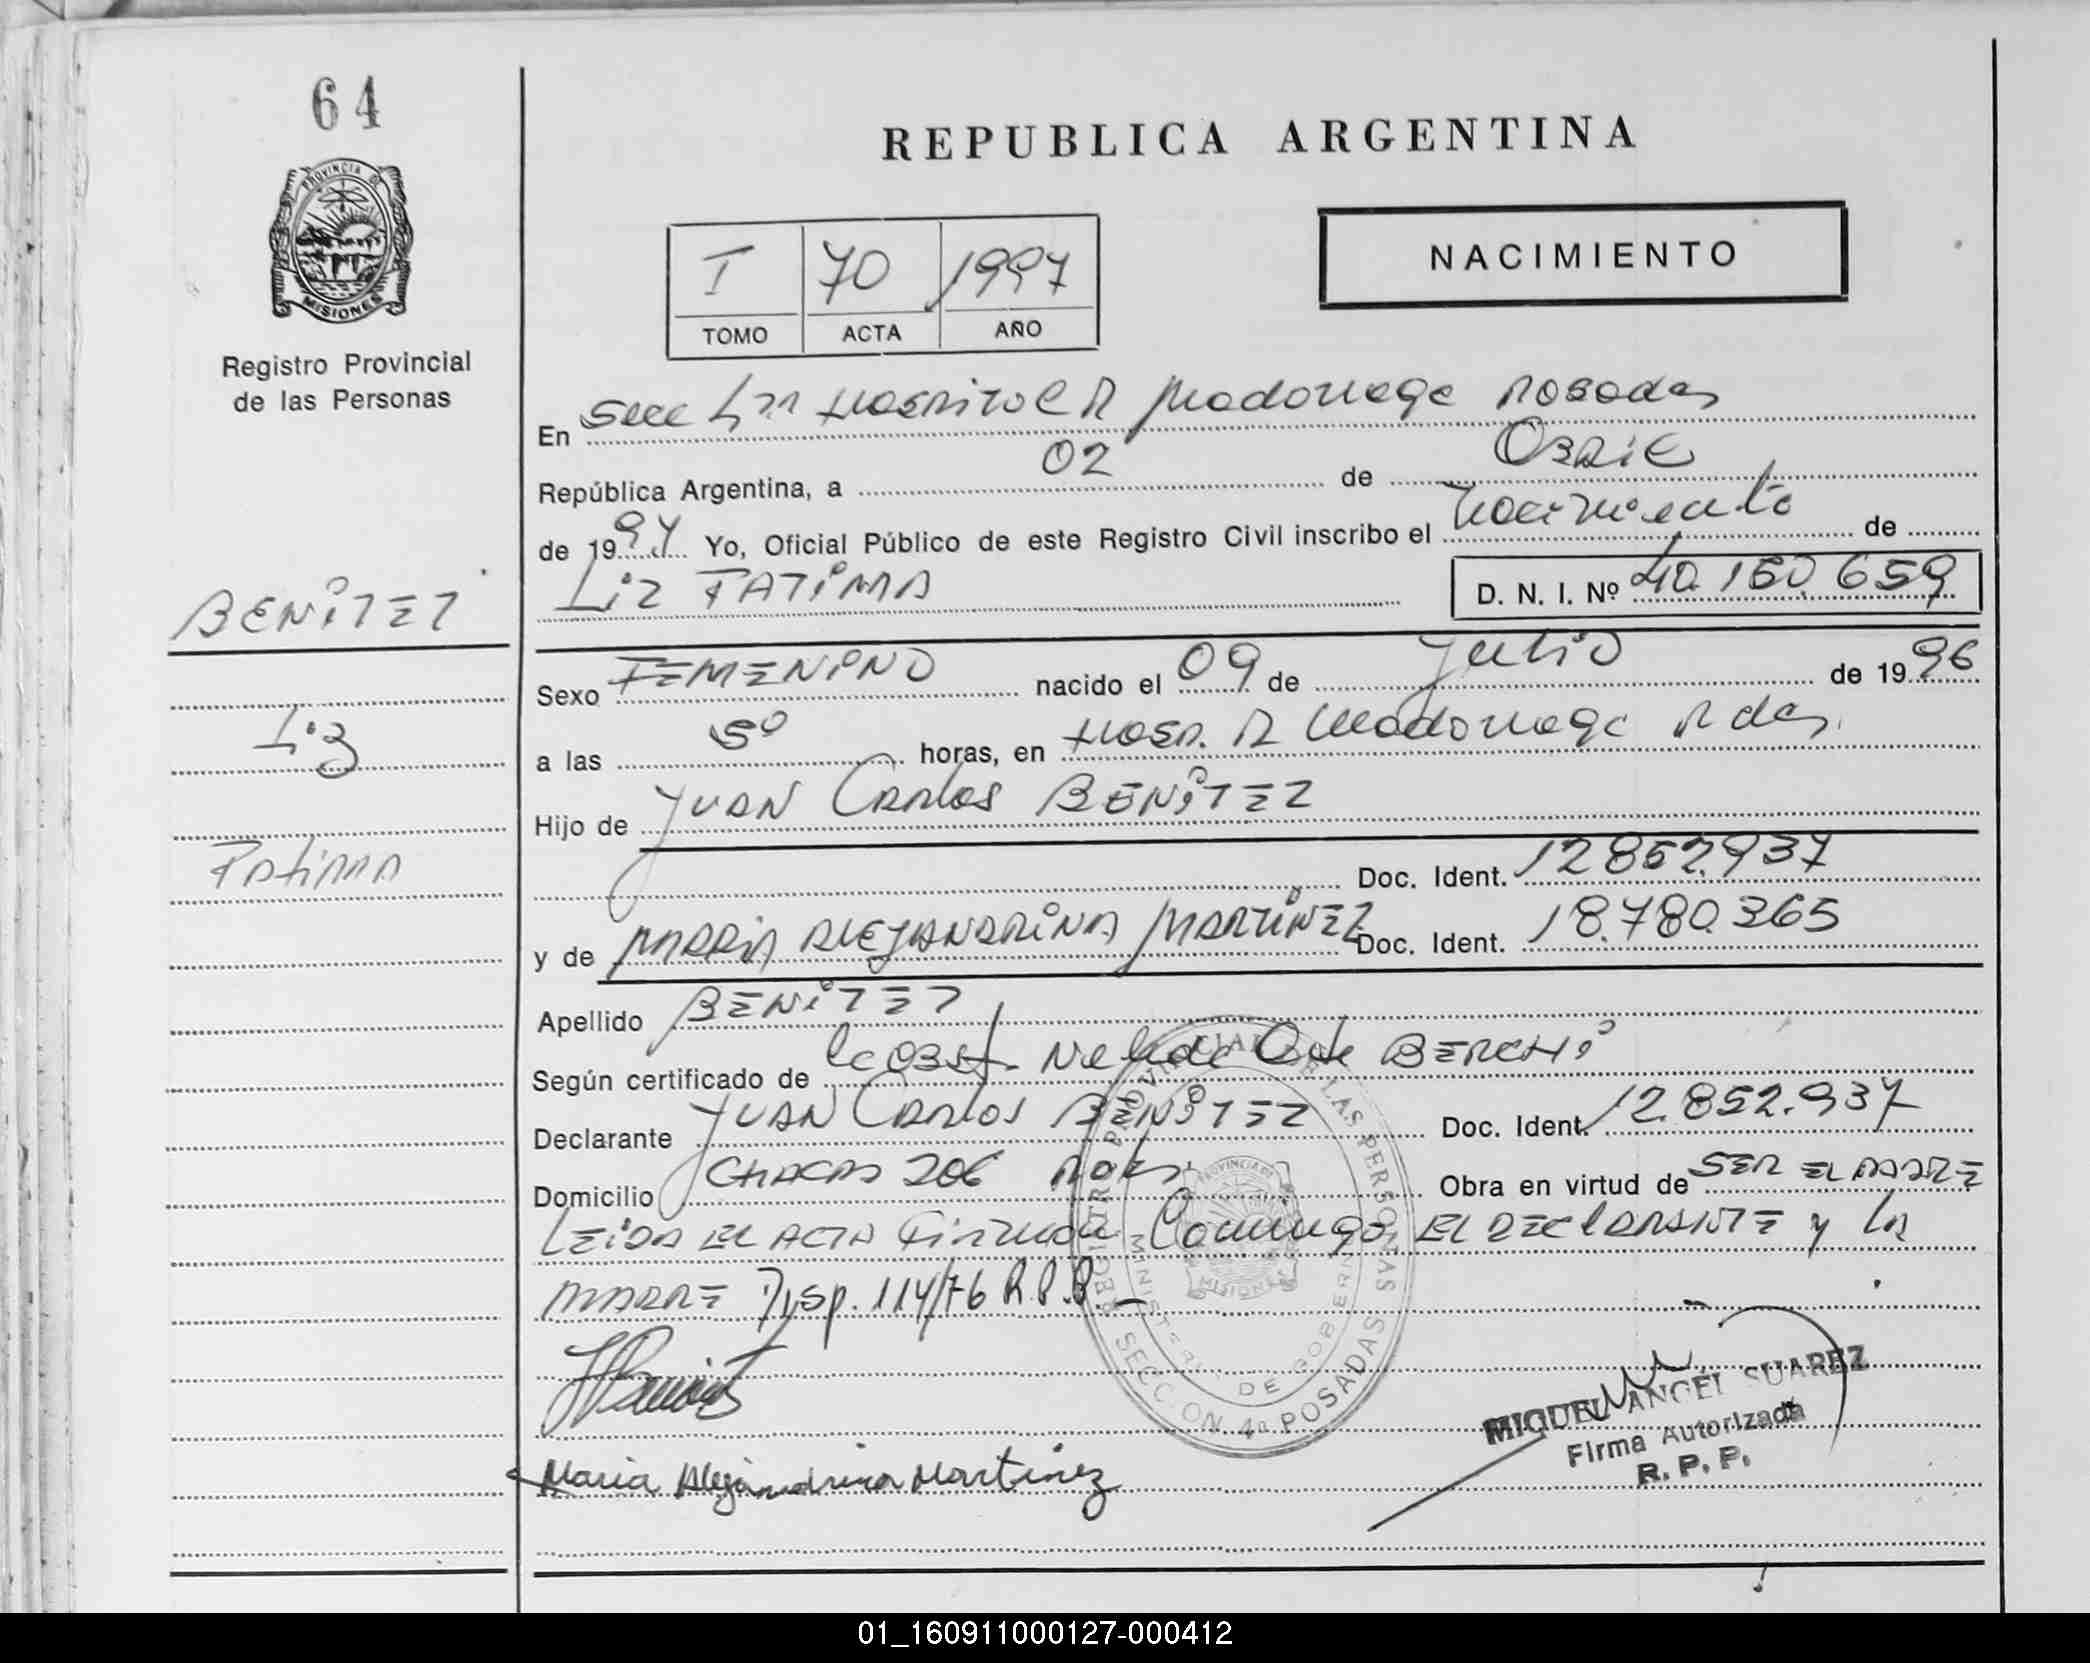 64
PROVINCIA DE
MISIONES
Registro Provincial
de las Personas
REPUBLICA ARGENTINA
I 70 1997
TOMO ACTA AÑO
NACIMIENTO
En Secc Hospital R Madariaga Posadas
República Argentina, a 02 de Abril
de 1997 Yo, Oficial Público de este Registro Civil inscribo el Nacimiento de
BENiTEZ
Liz FATiMA
D. N. I. Nº 40.150.659
Sexo FEMENiNO nacido el 09 de Julio de 1996
Liz
a las 5º horas, en Hosp. R Madariaga Pdas.
Hijo de JUAN Carlos BENiTEZ
Fatima
Doc. Ident. 12.852.937
y de MARIA ALEJANDRiNA MARTiNEZ Doc. Ident. 18.780.365
Apellido BENiTEZ
Según certificado de la Obst. BERCHi
Declarante JUAN Carlos BENiTEZ Doc. Ident. 12.852.937
Domicilio CHACRA 206 Pdas. Obra en virtud de SER EL PADRE
LEiDA EL ACTA Firman Conmigo EL DECLARANTE y La
MADRE Disp. 114/76 R.P.P.
REGISTRO PROVINCIAL DE LAS PERSONAS
MINISTERIO DE GOBIERNO
PROVINCIA DE
MISIONES
SECCION 4a POSADAS
MIGUEL ANGEL SUAREZ
Firma Autorizada
R. P. P.
Maria Alejandrina Martinez
01_160911000127-000412